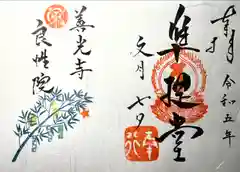 奉拝
令和五年
準提堂
文月七夕
善光寺
良性院